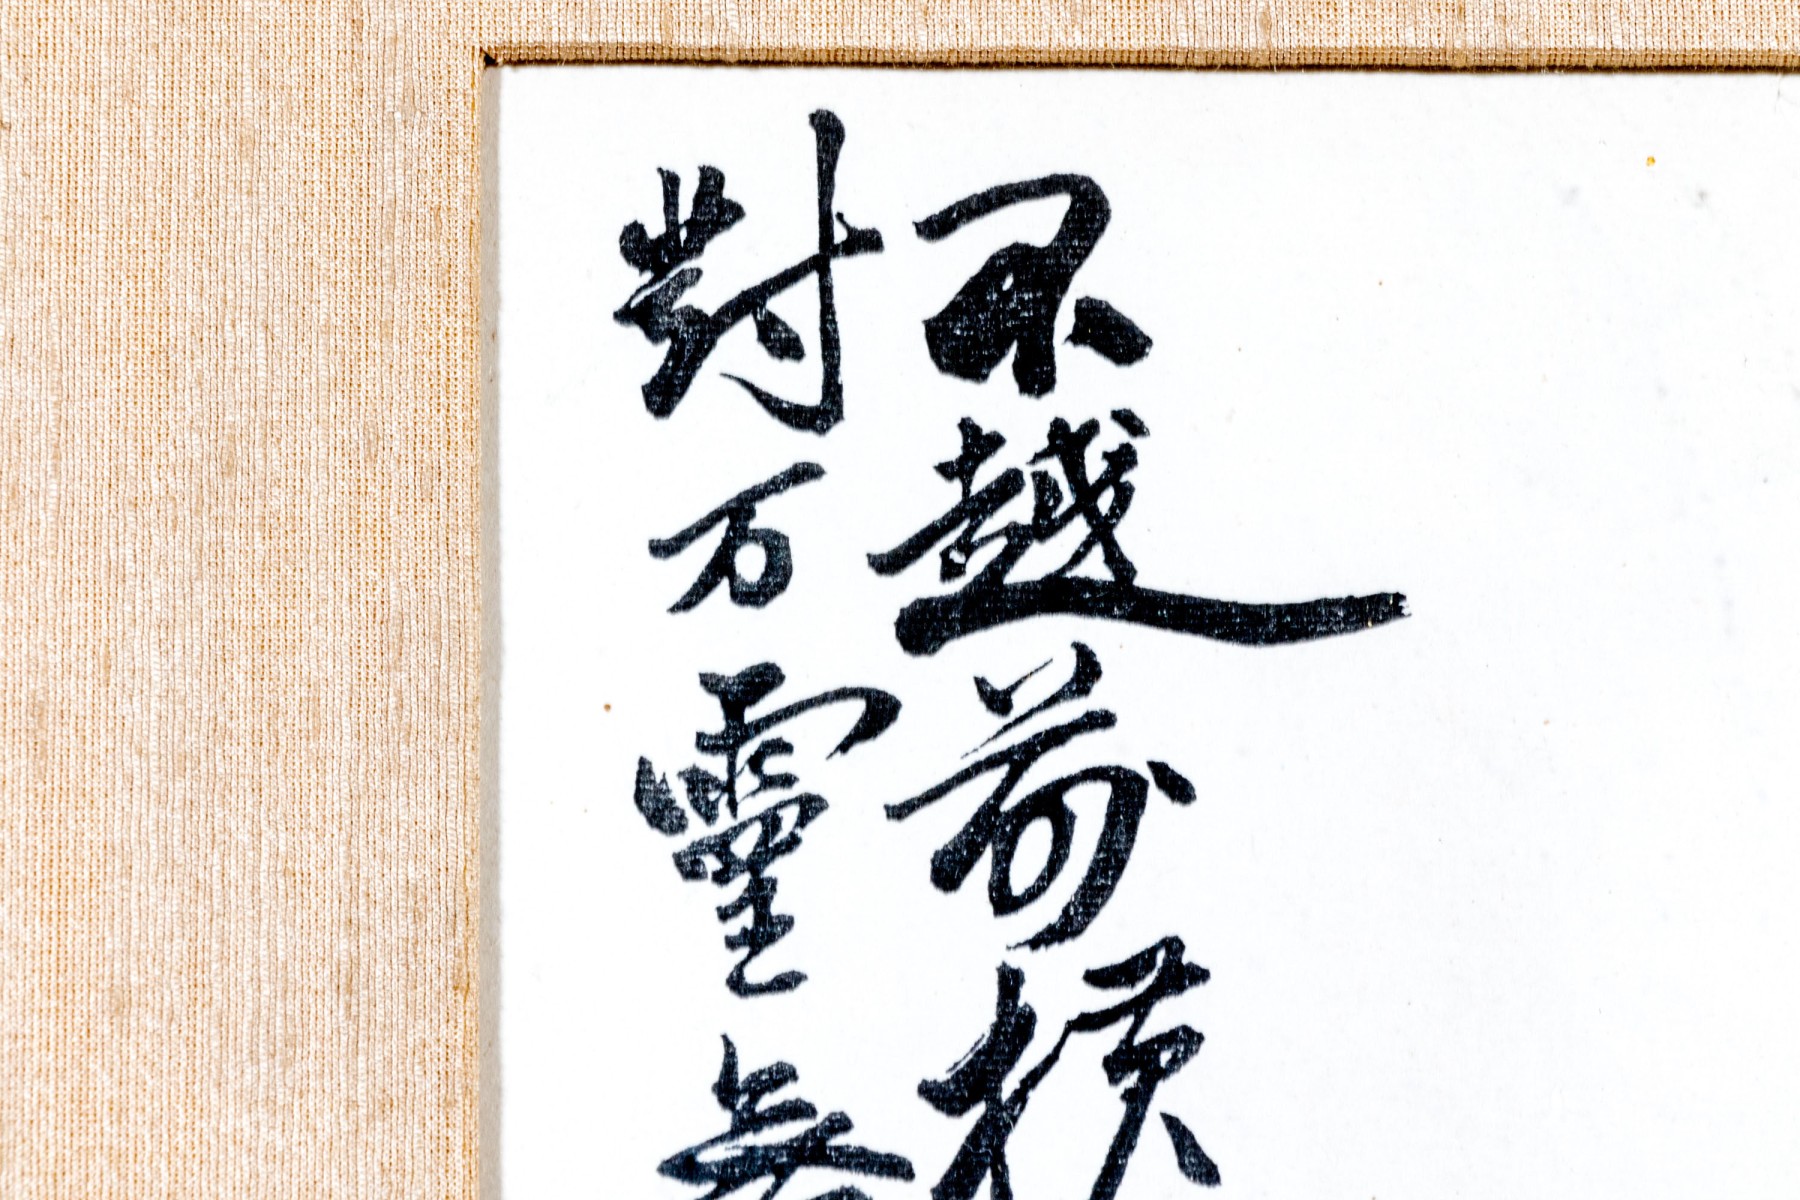 不越前横
對万靈